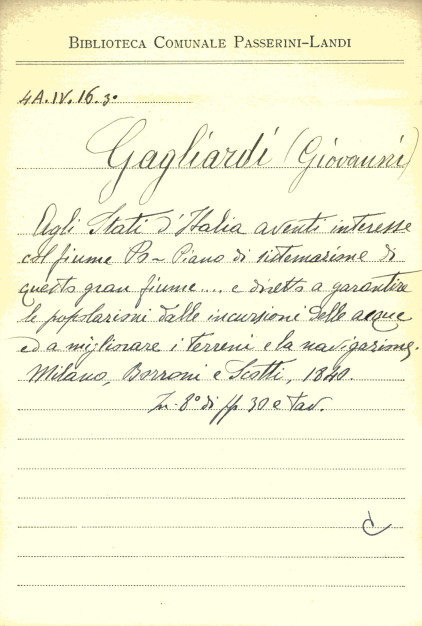 BIBLIOTECA COMUNALE PASSERINI-LANDI
4A.IV.16.3º
Gagliardi (Giovanni)
Agli Stati d'Italia aventi interesse
col fiume Po - Piano di sistemazione di
questo gran fiume.... e diretto a garantire
le popolazioni dalle incursioni delle acque
ed a migliorare i terreni e la navigazione.
Milano, Borroni e Scotti, 1840.
In 8º di pp 30 e tav.